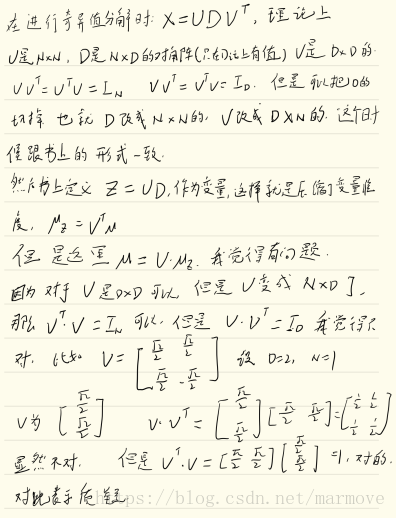 在进行奇异值分解时: X=UDV^T, 理论上
U是N×N, D是N×D的对角阵(只在D以上有值) V是D×D的.
UU^T=U^TU=I_N VV^T=V^TV=I_D. 但是可以把0的
切掉 也就 D改成N×N的, V改成D×N的. 这个时
候跟书上的形式一致.
然后书上定义 Z=UD, 作为变量, 这样就是压缩了变量维
度, μ_Z=V^Tμ
但是这里 μ=V·μ_Z. 我觉得有问题.
因为对于V是D×D可以, 但是V变成N×D了,
那么V^T·V=I_N 可以, 但是 V·V^T=I_D 我觉得不
对. 比如 V=[√2/2 √2/2; √2/2 -√2/2] 设 D=2, N=1
V为 [√2/2; √2/2] V·V^T=[√2/2; √2/2][√2/2 √2/2]=[1/2 1/2; 1/2 1/2]
显然不对. 但是 V^T·V=[√2/2 √2/2][√2/2; √2/2]=1, 对的.
对此表示怀疑
https://blog.csdn.net/marmove